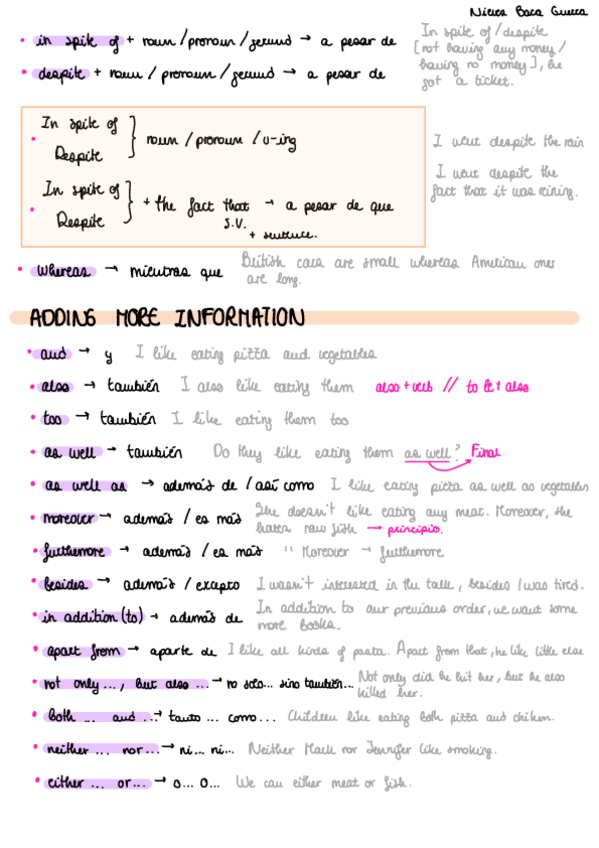 Nieves Baca Guerra
• in spite of + noun / pronoun / gerund → a pesar de
In spite of / despite
[not having any money /
having no money], he
got a ticket.
• despite + noun / pronoun / gerund → a pesar de
In spite of
Despite
noun / pronoun / v-ing
I went despite the rain
In spite of
Despite
+ the fact that → a pesar de que
S.V.
+ sentence.
I went despite the
fact that it was raining.
• Whereas → mientras que
British cars are small whereas American ones
are long.
ADDING MORE INFORMATION
• and → y I like eating pizza and vegetables
• also → también I also like eating them also + verb // to be + also
• too → también I like eating them too
• as well → también Do they like eating them as well? Final
• as well as → además de / así como I like eating pizza as well as vegetables
• moreover → además / es más She doesn't like eating any meat. Moreover, she
hates raw fish → principio.
• furthermore → además / es más " Moreover → furthermore
• besides → además / excepto I wasn't interested in the talk, besides I was tired.
• in addition (to) → además de In addition to our previous order, we want some
more books.
• apart from → aparte de I like all kinds of pasta. Apart from that, he like little else
• not only ..., but also ... → no solo... sino también... Not only did he hit her, but he also
killed her.
• both ... and ... → tanto ... como... Children like eating both pizza and chiken.
• neither ... nor... → ni... ni... Neither Mark nor Jennifer like smoking.
• either ... or... → o... o... We can either meat or fish.